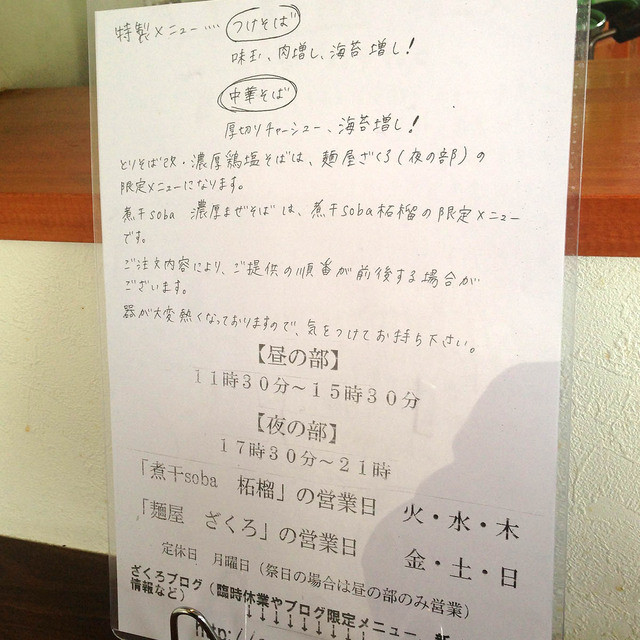 特製メニュー‥‥ つけそば
味玉、肉増し、海苔増し!
中華そば
厚切りチャーシュー、海苔増し!
とりそば改・濃厚鶏塩そばは、麺屋ざくろ(夜の部)の
限定メニューになります。
煮干soba 濃厚まぜそばは、煮干soba柘榴の限定メニュー
です。
ご注文内容により、ご提供の順番が前後する場合が
ございます。
器が大変熱くなっておりますので、気をつけてお持ち下さい。
【昼の部】
11時30分~15時30分
【夜の部】
17時30分~21時
「煮干soba 柘榴」の営業日 火・水・木
「麺屋 ざくろ」の営業日 金・土・日
定休日 月曜日(祭日の場合は昼の部のみ営業)
ざくろブログ(臨時休業やブログ限定メニュー、新
情報など) ↓↓↓↓↓↓↓↓
http://